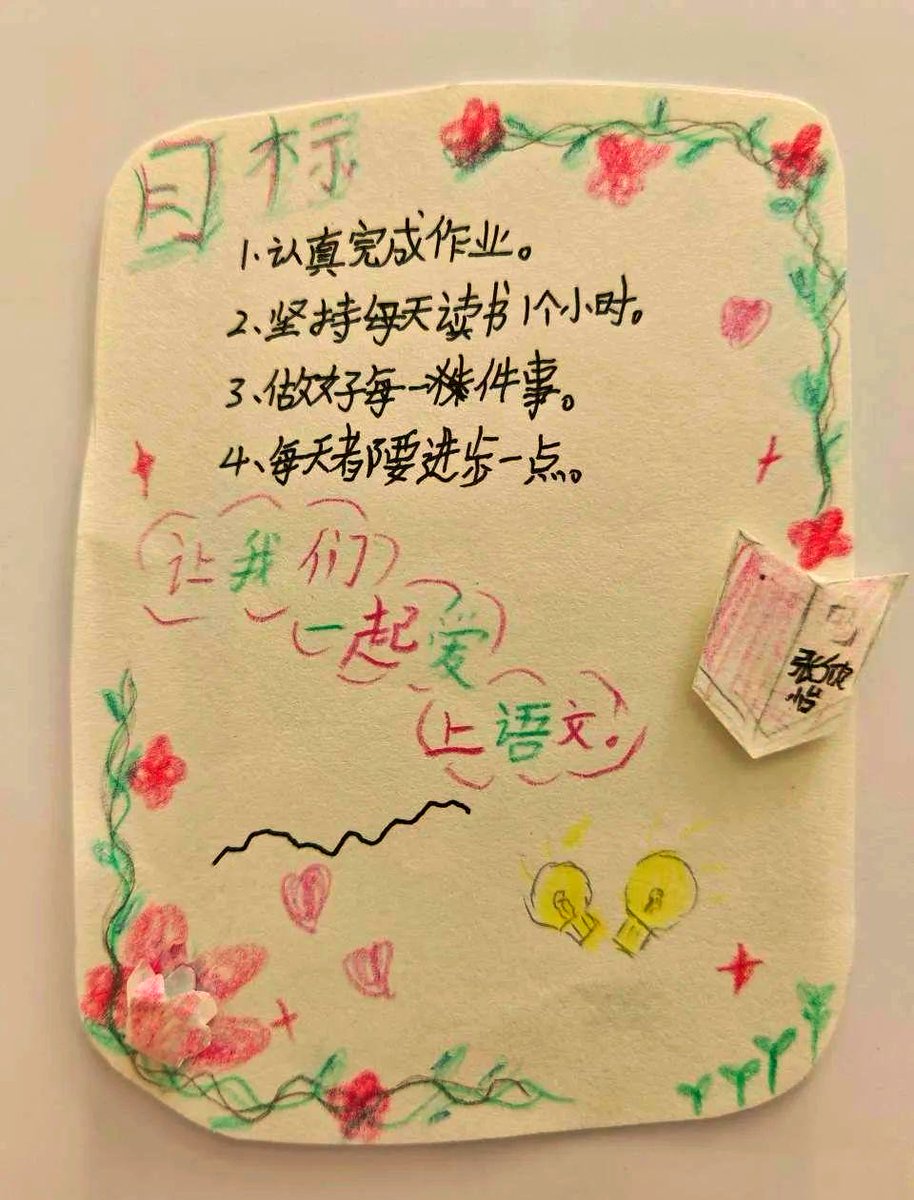 目标
1、认真完成作业。
2、坚持每天读书1个小时。
3、做好每一件事。
4、每天都要进步一点。
让我们
一起爱
上语文。
张欣
怡